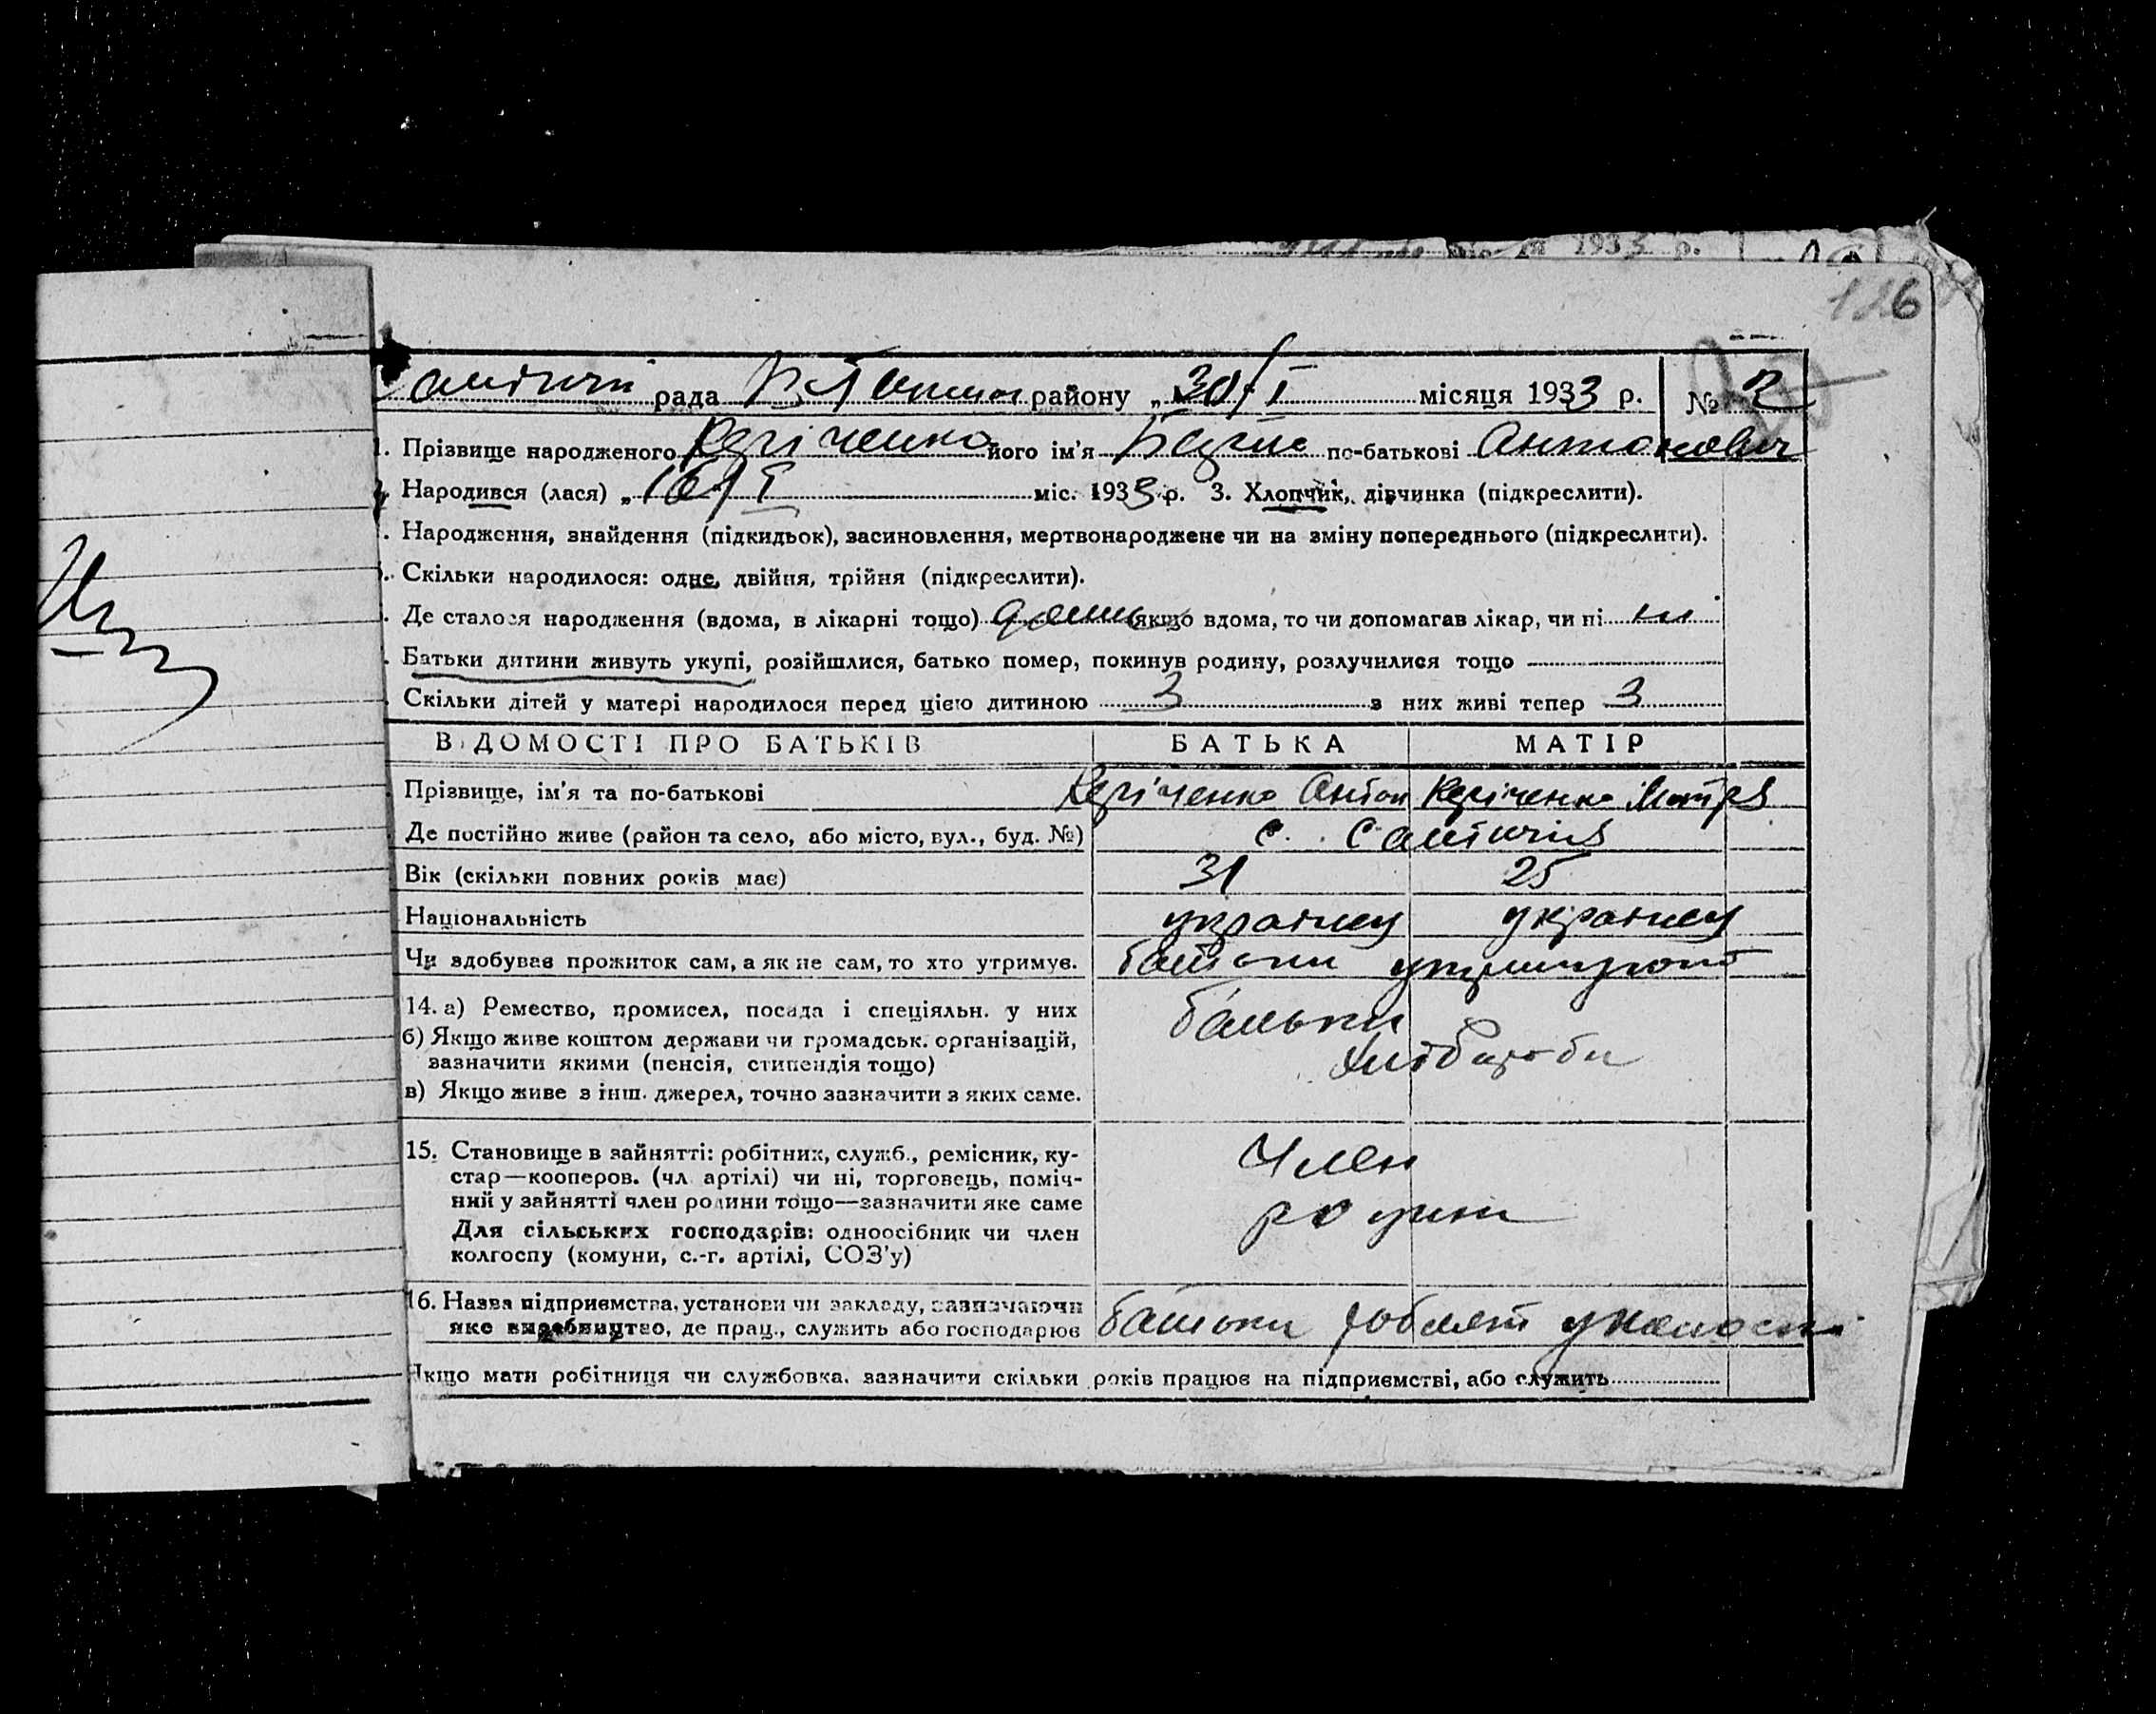 126
рада району „30/I місяця 1933 р. № 2
1. Прізвище народженого його ім'я по-батькові Антонович
Народився (лася) „16/I міс. 1933 р. 3. Хлопчик, дівчинка (підкреслити).
. Народження, знайдення (підкидьок), засиновлення, мертвонароджене чи на зміну попереднього (підкреслити).
. Скільки народилося: одне, двійня, трійня (підкреслити).
. Де сталося народження (вдома, в лікарні тощо) дома якщо вдома, то чи допомагав лікар, чи ні ні
. Батьки дитини живуть укупі, розійшлися, батько помер, покинув родину, розлучилися тощо
Скільки дітей у матері народилося перед цією дитиною 3 з них живі тепер 3
ВІДОМОСТІ ПРО БАТЬКІВ БАТЬКА МАТІР
Прізвище, ім'я та по-батькові Антон
Де постійно живе (район та село, або місто, вул., буд. №) с.
Вік (скільки повних років має) 31 25
Національність
Чи здобуває прожиток сам, а як не сам, то хто утримує. батьки утримують
14. а) Ремество, промисел, посада і спеціяльн. у них батьки
б) Якщо живе коштом держави чи громадськ. організацій, хлібороби
зазначити якими (пенсія, стипендія тощо)
в) Якщо живе з інш. джерел, точно зазначити з яких саме.
15. Становище в зайнятті: робітник, служб., ремісник, ку- Член
стар—кооперов. (чл. артілі) чи ні, торговець, поміч-
ний у зайнятті член родини тощо—зазначити яке саме родини
Для сільських господарів: одноосібник чи член
колгоспу (комуни, с.-г. артілі, СОЗ'у)
16. Назва підприємства, установи чи закладу, зазначаючи
яке виробництво, де прац., служить або господарює батьки роблять у колгоспі
Якщо мати робітниця чи службовка, зазначити скільки років працює на підприємстві, або служить